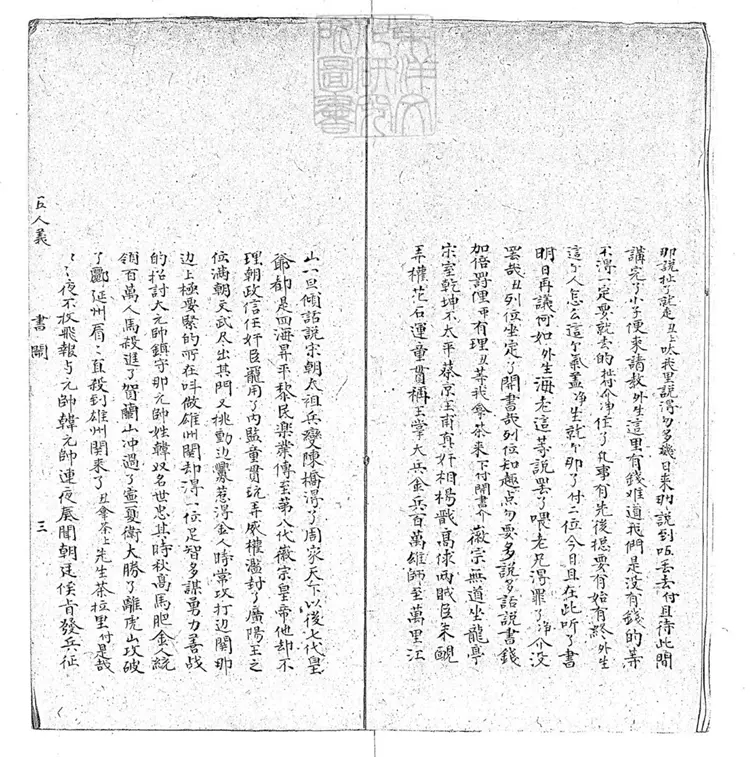 那說扯了就走丑上呔我里說得句多幾日來聽說到唔丢去付且待此間
講完了小子便來請教外生這里有錢难道我們是没有錢的等
不得一定要就去的將介净住了凡事有先後揔要有始有終外生
這个人怎么這个氣盖净生就个卯了付二位今日且在此听了書
明日再議何如外生海老這等說罢了喂老兄得罪了净介没
罢哉丑列位坐定了開書哉列位知趣点勿要多說多話說書錢
加倍罸俚卫有理丑等我拿茶来下付開書介徽宗無道坐龍亭
宋室乾坤不太平蔡京
奸相楊戬高俅兩賊臣朱勔
弄權花石運童貫稱王掌大兵金兵百萬雄師至萬里江
山一旦傾話說宋朝太祖兵變陳橋得了周家天下以後七代皇
爺都是四海昇平黎民樂業傳至第八代徽宗皇帝他却不
理朝政信任奸臣寵用了内監童貫玩弄威權濫封了廣陽王之
位滿朝文武尽出其門又挑動边釁惹得金人時常攻打边關那
边上極要緊的所在呌做雄州關却得一位足智多謀勇力善战
的招討大元帥鎮守那元帥姓韓双名世忠其時秋高馬肥金人統
領百萬人馬殺進了賀蘭山冲過了寧夏衛大勝了離虎山攻破
了酈延州眉眉直殺到雄州關来了丑拿茶上先生茶拉里付是哉
夜不收飛報與元帥韓元帥連夜奏聞朝廷俟旨發兵征
五人義
書鬧
三
東洋文化研究所圖書